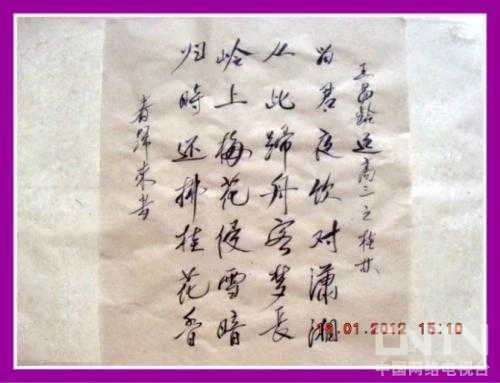 王昌龄送高三之桂林
留君夜饮对潇湘
从此歸舟客梦長
岭上梅花侵雪暗
归時还拂桂花香
18.01.2012 15:10
CNTV
中国网络电视台